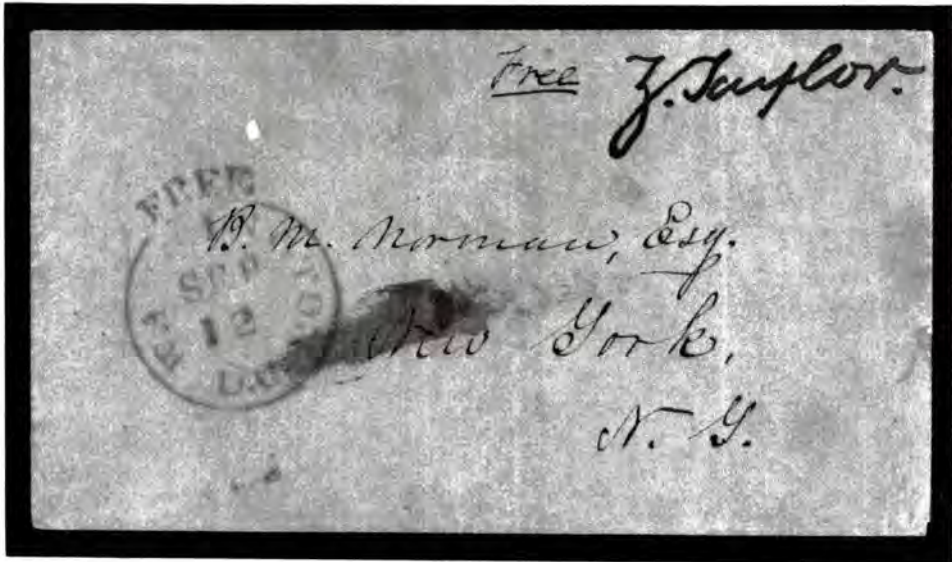 Free Z. Taylor.
FREE
SEP
12
D.C.
B. M. Norman, Esq.
New York,
N. Y.